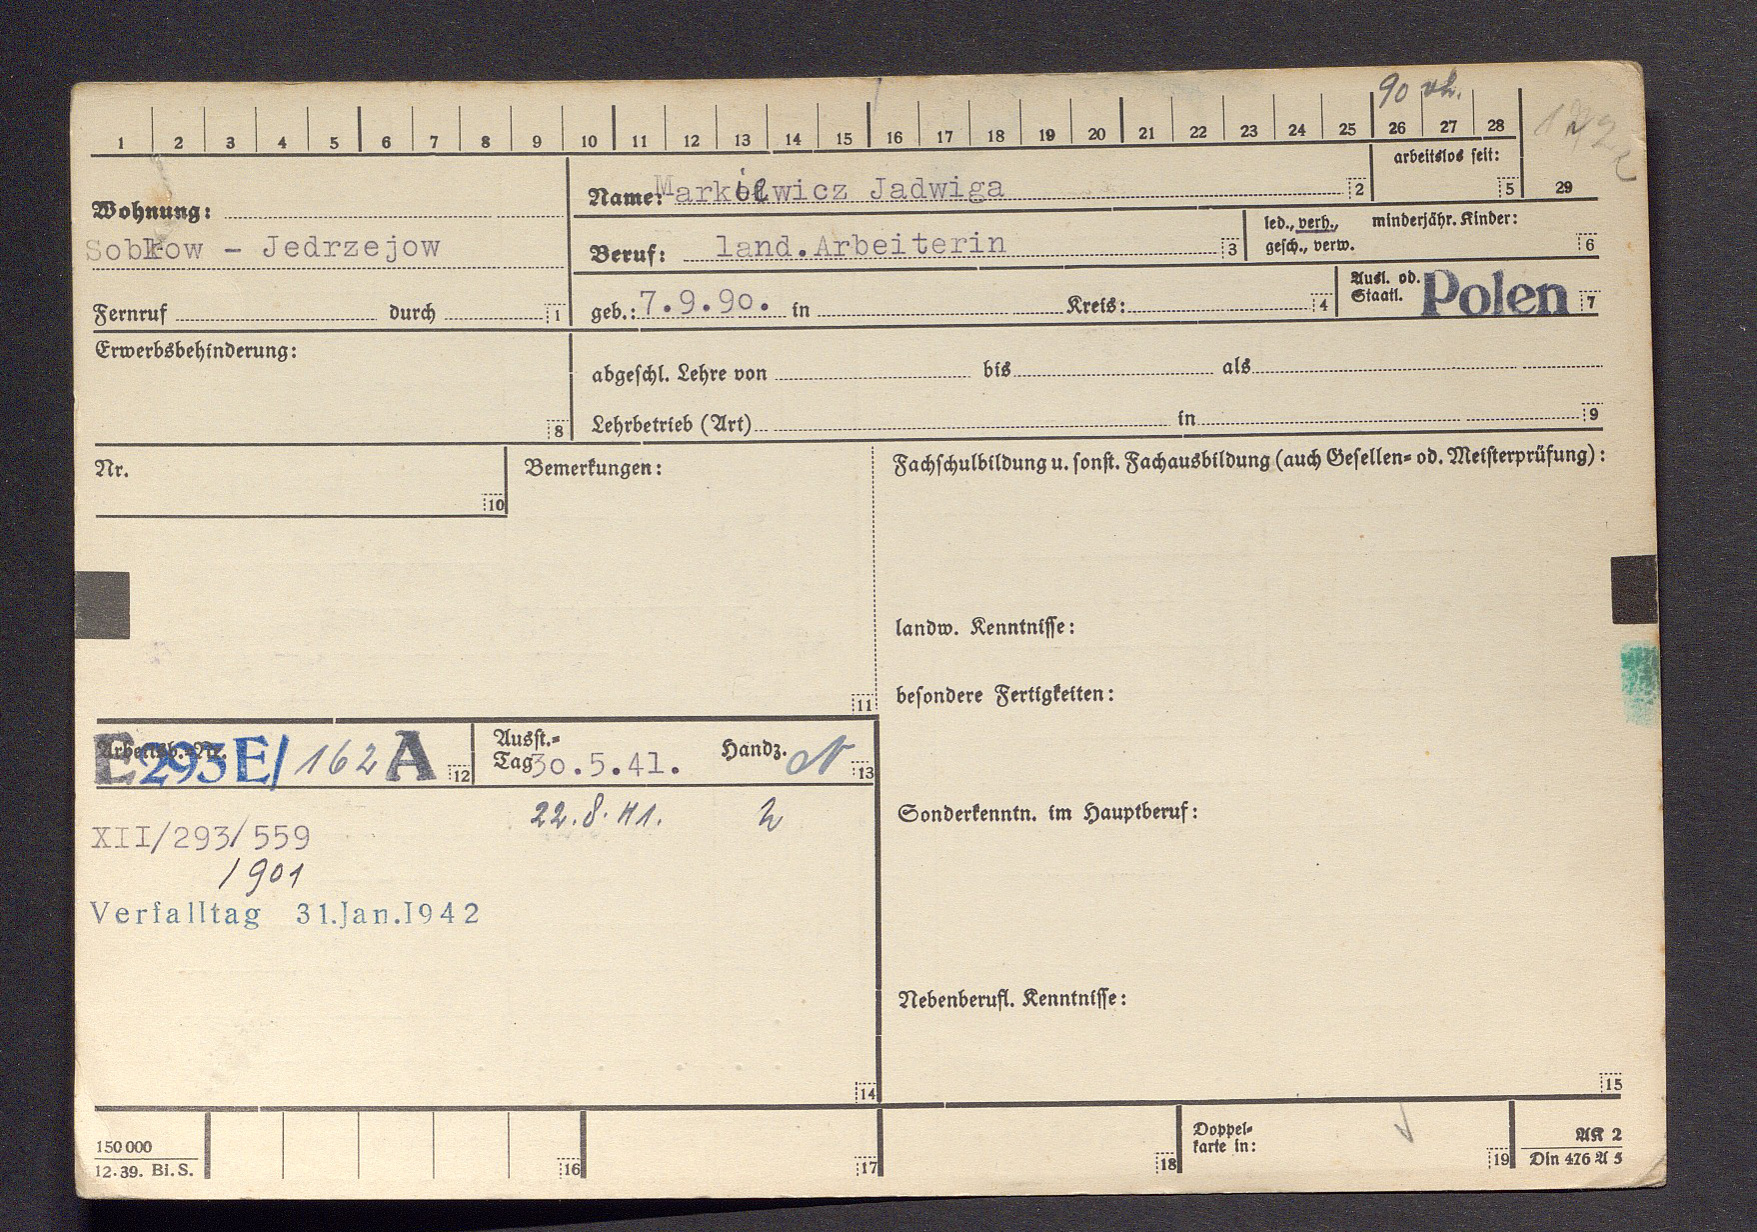 90 vh.
1 2 3 4 5 6 7 8 9 10 11 12 13 14 15 16 17 18 19 20 21 22 23 24 25 26 27 28
29
arbeitslos seit: 5
Wohnung:
Sobkow - Jedrzejow
Fernruf durch 1
Name: Markiewicz Jadwiga 2
Beruf: land.Arbeiterin 3
led., verh., minderjähr. Kinder:
gesch., verw. 6
geb.: 7.9.90. in Kreis: 4
Ausl. od.
Staatl. Polen 7
Erwerbsbehinderung:
8
abgeschl. Lehre von bis als
Lehrbetrieb (Art) in 9
Nr.
10
Bemerkungen:
11
Fachschulbildung u. sonst. Fachausbildung (auch Gesellen- od. Meisterprüfung):
landw. Kenntnisse:
besondere Fertigkeiten:
Sonderkenntn. im Hauptberuf:
Nebenberufl. Kenntnisse:
15
Arbeitsb.-Nr.
E 293E/162 A 12
Ausst.-
Tag 30.5.41. Handz. 13
22.8.41.
XII/293/559
/901
Verfalltag 31.Jan.1942
14
150 000
12.39. Bi.S.
16 17 18
Doppel-
karte in: 19
AK 2
Din 476 A 5